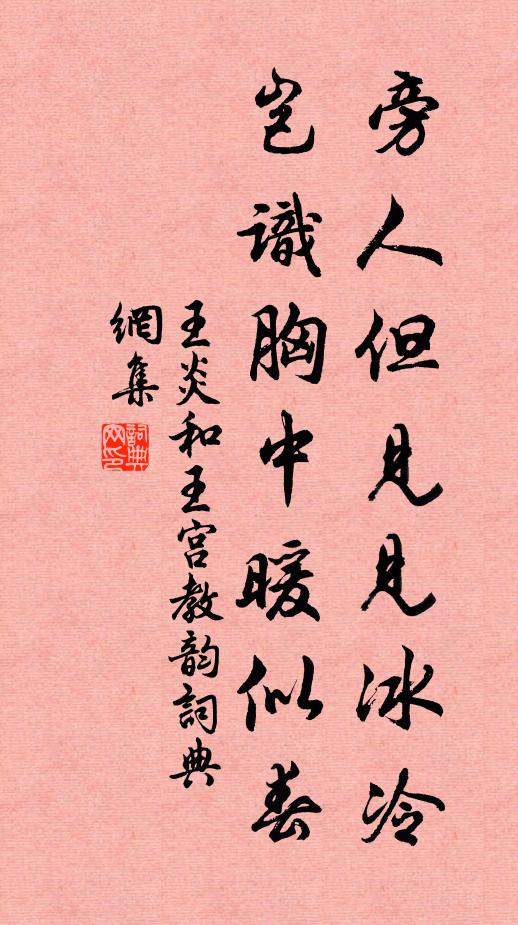 旁人但見見冰冷
豈識胸中暖似春
王炎和王宮教韵詞典
網集
詞典網印